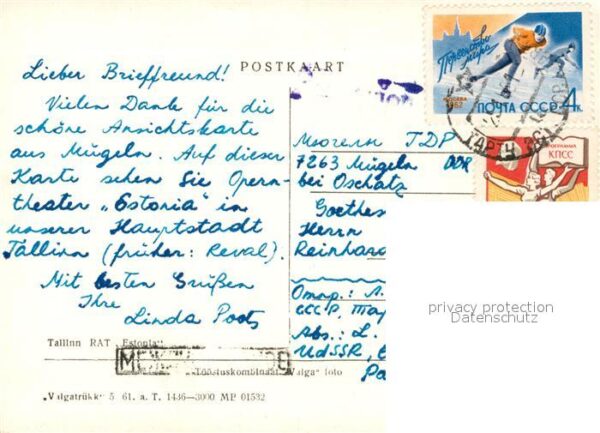 POSTKAART
Lieber Brieffreund!
Vielen Dank für die
schöne Ansichtskarte
aus Mügeln. Auf dieser
Karte sehen Sie Opern-
theater „Estonia“ in
unserer Hauptstadt
Tallinn (früher: Reval).
Mit besten Grüßen
Ihre
Linda Poots
Tallinn RAT „Estonia“
Tööstuskombinaat „Valga“ foto
„Valgatrükk“ 5 61. a. T. 1436—3000 MP 01532
Первенство
мира
МОСКВА
1962
ПОЧТА СССР 4 к.
ТАРТУ
ПРОГРАММА
КПСС
Мюгельн ГДР
7263 Mügeln DDR
bei Oschatz
Goethes
Herrn
Reinhard
Отпр.: Л.
СССР, Тар
Abs.: L.
UdSSR,
privacy protection
Datenschutz